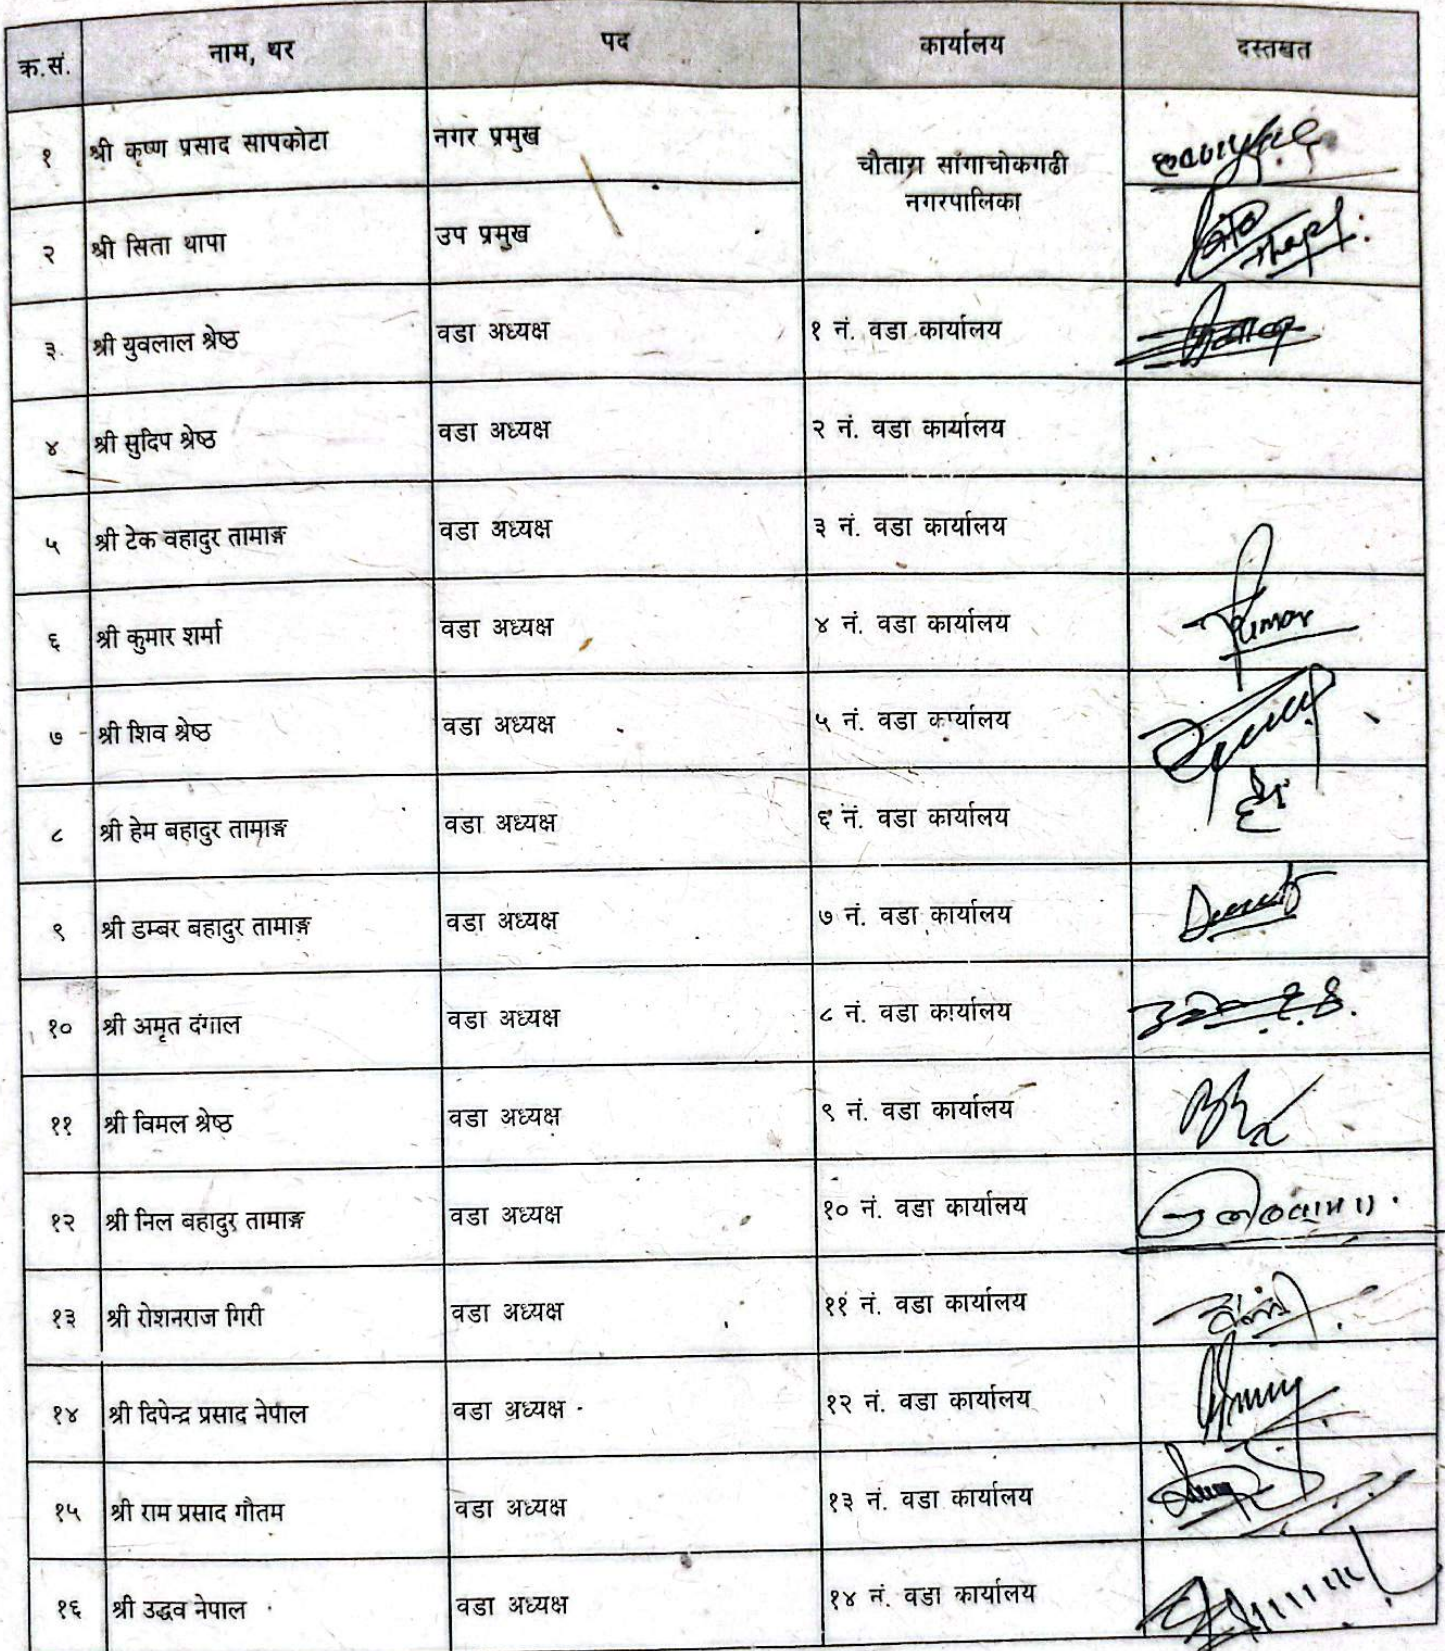 क्र.सं. नाम, थर पद कार्यालय दस्तखत
१ श्री कृष्ण प्रसाद सापकोटा नगर प्रमुख चौतारा सांगाचोकगढी
नगरपालिका
२ श्री सिता थापा उप प्रमुख
३ श्री युवलाल श्रेष्ठ वडा अध्यक्ष १ नं. वडा कार्यालय
४ श्री सुदिप श्रेष्ठ वडा अध्यक्ष २ नं. वडा कार्यालय
५ श्री टेक वहादुर तामाङ्ग वडा अध्यक्ष ३ नं. वडा कार्यालय
६ श्री कुमार शर्मा वडा अध्यक्ष ४ नं. वडा कार्यालय Kumar
७ श्री शिव श्रेष्ठ वडा अध्यक्ष ५ नं. वडा कार्यालय
८ श्री हेम बहादुर तामाङ्ग वडा अध्यक्ष ६ नं. वडा कार्यालय
९ श्री डम्बर बहादुर तामाङ्ग वडा अध्यक्ष ७ नं. वडा कार्यालय
१० श्री अमृत दंगाल वडा अध्यक्ष ८ नं. वडा कार्यालय
११ श्री विमल श्रेष्ठ वडा अध्यक्ष ९ नं. वडा कार्यालय
१२ श्री निल बहादुर तामाङ्ग वडा अध्यक्ष १० नं. वडा कार्यालय
१३ श्री रोशनराज गिरी वडा अध्यक्ष ११ नं. वडा कार्यालय
१४ श्री दिपेन्द्र प्रसाद नेपाल वडा अध्यक्ष १२ नं. वडा कार्यालय
१५ श्री राम प्रसाद गौतम वडा अध्यक्ष १३ नं. वडा कार्यालय
१६ श्री उद्धव नेपाल वडा अध्यक्ष १४ नं. वडा कार्यालय